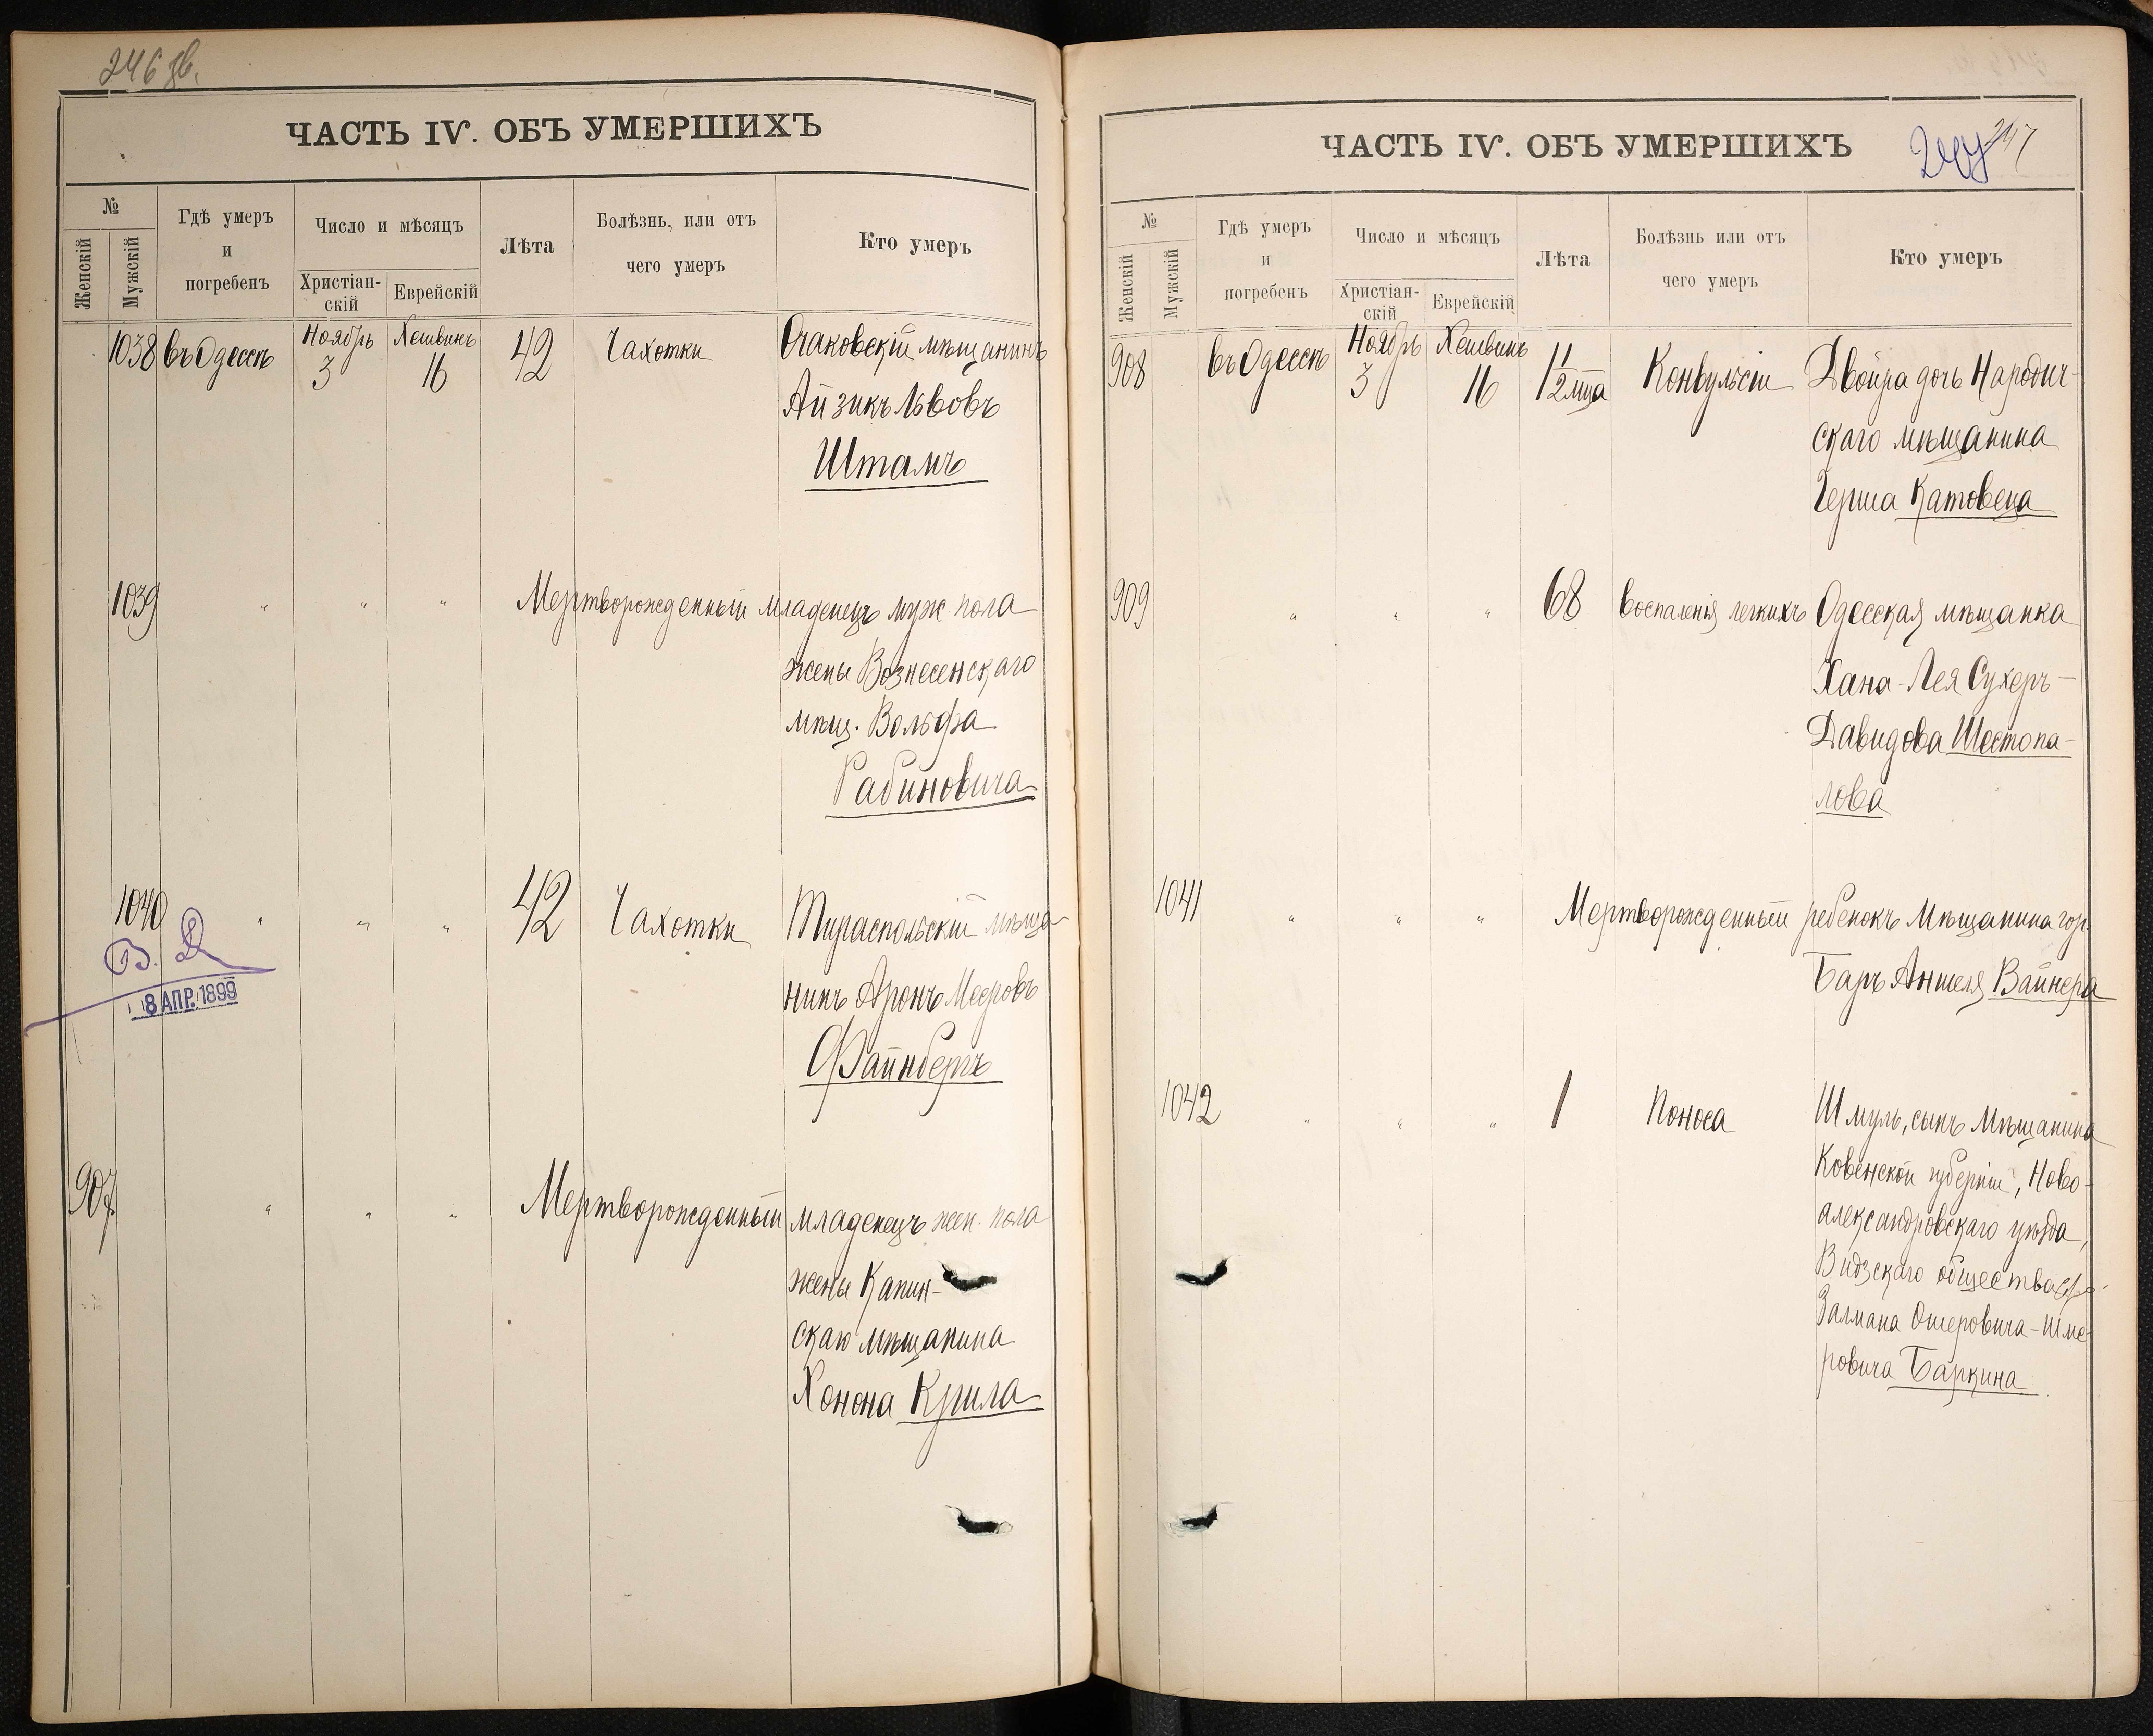 246 об.
ЧАСТЬ IV. ОБЪ УМЕРШИХЪ
№
Женскій
Мужскій
Гдѣ умеръ
и
погребенъ
Число и мѣсяцъ
Христіан-
скій
Еврейскій
Лѣта
Болѣзнь, или отъ
чего умеръ
Кто умеръ
1038 въ Одессѣ Ноябрь 3 Хешвинъ 16 42 Чахотки Очаковскій мѣщанинъ
Айзикъ Львовъ
Штамъ
1039 " " " Мертворожденный младенецъ муж. пола
жены Вознесенскаго
мѣщ. Вольфа
Рабиновича
1040 " " " 42 Чахотки Тираспольскій мѣща-
нинъ Аронъ Мееровъ
Файнбергъ
В. Д
8 АПР. 1899
907 " " " Мертворожденный младенецъ жен. пола
жены Капин-
скаго мѣщанина
Хонона Крила
ЧАСТЬ IV. ОБЪ УМЕРШИХЪ
247
№
Женскій
Мужскій
Гдѣ умеръ
и
погребенъ
Число и мѣсяцъ
Христіан-
скій
Еврейскій
Лѣта
Болѣзнь или отъ
чего умеръ
Кто умеръ
908 въ Одессѣ Ноябрь 3 Хешвинъ 16 11/12 мца Конвульсіи Двойра дочь Народич-
скаго мѣщанина
Герша Катовеца
909 " " " 68 Воспаленія легкихъ Одесская мѣщанка
Хана-Лея Сухеръ-
Давидова Шестопа-
лова
1041 " " " Мертворожденный ребенокъ Мѣщанина гор.
Баръ Аншеля Вайнера
1042 " " " 1 Поноса Шмуль, сынъ Мѣщанина
Ковенской губерніи, Ново-
александровскаго уѣзда,
Видзскаго общества
Залмана Ошеровича-Шме-
ровича Баркина